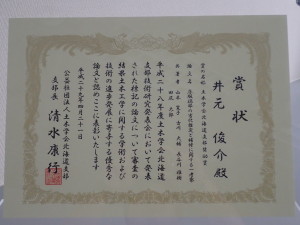 賞状
井元俊介殿
賞の名称 土木学会北海道支部奨励賞
平成二十八年度土木学会北海道
支部技術研究発表会において発表
された標記の論文について審査の
結果土木工学に関する学術および
技術の進歩発展に寄与する優秀な
論文と認めここに表彰いたします
平成二十九年四月二十一日
公益社団法人土木学会北海道支部
支部長 清水康行